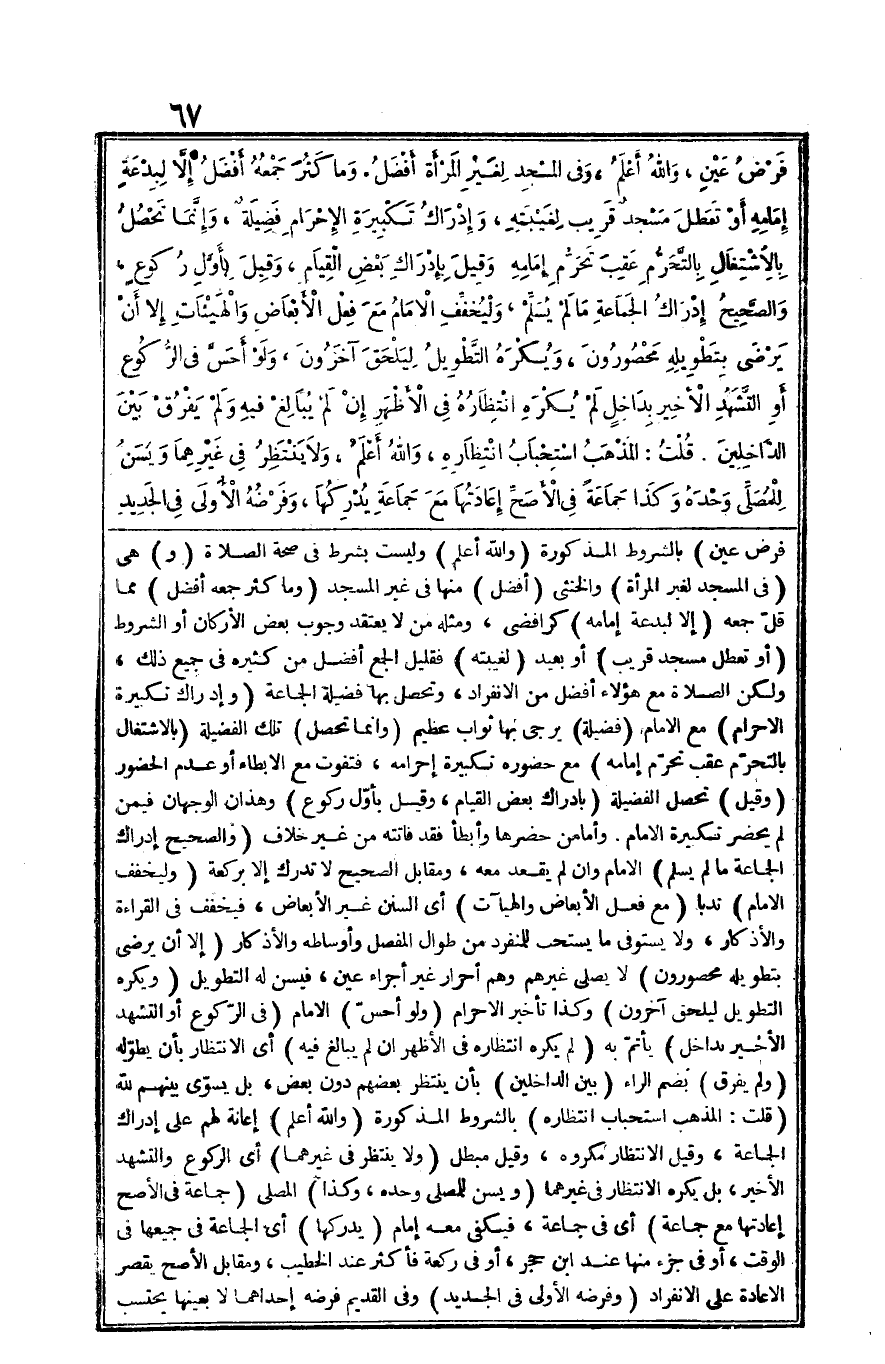 ٦٧
فَرْضُ عَيْنٍ ، وَاللهُ أَعْلَمُ ، وَفِى المَسْجِدِ لِغَيْرِ المَرْأَةِ أَفْضَلُ . وَمَا كَثُرَ جَمْعُهُ أَفْضَلُ إِلَّا لِبِدْعَةِ
إِمَامِهِ أَوْ تَعَطَّلَ مَسْجِدٌ قَرِيبٌ لِغَيْبَتِهِ ، وَإِدْرَاكُ تَكْبِيرَةِ الإِحْرَامِ فَضِيلَةٌ ، وَإِنَّمَا تَحْصُلُ
بِالِاشْتِغَالِ بِالتَّحَرُّمِ عَقِبَ تَحَرُّمِ إِمَامِهِ وَقِيلَ بِإِدْرَاكِ بَعْضِ الْقِيَامِ ، وَقِيلَ بِأَوَّلِ رُكُوعٍ ،
وَالصَّحِيحُ إِدْرَاكُ الجَمَاعَةِ مَا لَمْ يُسَلِّمْ ، وَلْيُخَفِّفِ الْامَامُ مَعَ فِعْلِ الْأَبْعَاضِ وَالْهَيْئَاتِ إِلا أَنْ
يَرْضَى بِتَطْوِيلِهِ مَحْصُورُونَ ، وَيُكْرَهُ التَّطْوِيلُ لِيَلْحَقَ آخَرُونَ ، وَلَوْ أَحَسَّ فِى الرُّكُوعِ
أَوِ التَّشَهُّدِ الْأَخِيرِ بِدَاخِلٍ لَمْ يُكْرَهِ انْتِظَارُهُ فِى الْأَظْهَرِ إِنْ لَمْ يُبَالِغْ فِيهِ وَلَمْ يَفْرُقْ بَيْنَ
الدَّاخِلِينَ . قُلْتُ : المَذْهَبُ اسْتِحْبَابُ انْتِظَارِهِ ، وَاللهُ أَعْلَمُ ، وَلَا يَنْتَظِرُ فِى غَيْرِهِمَا وَيُسَنُّ
لِلْمُصَلِّى وَحْدَهُ وَكَذَا جَمَاعَةً فِى الْأَصَحِّ إِعَادَتُهَا مَعَ جَمَاعَةٍ يُدْرِكُهَا ، وَفَرْضُهُ الْأُولَى فِى الجَدِيدِ
فرض عين ) بالشروط المذكورة ( والله أعلم ) وليست بشرط فى صحة الصلاة ( و ) هى
( فى المسجد لغير المرأة ) والخنثى ( أفضل ) منها فى غير المسجد ( وما كثر جمعه أفضل ) مما
قلّ جمعه ( إلا لبدعة إمامه ) كرافضى ، ومثله من لا يعتقد وجوب بعض الأركان أو الشروط
( أو تعطل مسجد قريب ) أو بعيد ( لغيبته ) فقليل الجمع أفضل من كثيره فى جميع ذلك ،
ولكن الصلاة مع هؤلاء أفضل من الانفراد ، وتحصل بها فضيلة الجماعة ( وإدراك تكبيرة
الاحرام ) مع الامام ( فضيلة ) يرجى بها ثواب عظيم ( وانما تحصل ) تلك الفضيلة ( بالاشتغال
بالتحرّم عقب تحرّم إمامه ) مع حضوره تكبيرة إحرامه ، فتفوت مع الابطاء أو عدم الحضور
( وقيل ) تحصل الفضيلة ( بادراك بعض القيام ، وقيل بأوّل ركوع ) وهذان الوجهان فيمن
لم يحضر تكبيرة الامام . وأما من حضرها وأبطأ فقد فاتته من غير خلاف ( والصحيح إدراك
الجماعة ما لم يسلم ) الامام وان لم يقعد معه ، ومقابل الصحيح لا تدرك إلا بركعة ( وليخفف
الامام ) ندبا ( مع فعل الأبعاض والهيآت ) أى السنن غير الأبعاض ، فيخفف فى القراءة
والأذكار ، ولا يستوفى ما يستحب للمنفرد من طوال المفصل وأوساطه والأذكار ( إلا أن يرضى
بتطويله محصورون ) لا يصلى غيرهم وهم أحرار غير أجراء عين ، فيسن له التطويل ( ويكره
التطويل ليلحق آخرون ) وكذا تأخير الاحرام ( ولو أحسّ ) الامام ( فى الركوع أو التشهد
الأخير بداخل ) يأتمّ به ( لم يكره انتظاره فى الأظهر ان لم يبالغ فيه ) أى الانتظار بأن يطوّله
( ولم يفرق ) بضم الراء ( بين الداخلين ) بأن ينتظر بعضهم دون بعض ، بل يسوّى بينهم لله
( قلت : المذهب استحباب انتظاره ) بالشروط المذكورة ( والله أعلم ) إعانة لهم على إدراك
الجماعة ، وقيل الانتظار مكروه ، وقيل مبطل ( ولا ينتظر فى غيرهما ) أى الركوع والتشهد
الأخير ، بل يكره الانتظار فى غيرهما ( ويسن للمصلى وحده ، وكذا ) المصلى ( جماعة فى الأصح
إعادتها مع جماعة ) أى فى جماعة ، فيكفى معه إمام ( يدركها ) أى الجماعة فى جميعها فى
الوقت ، أو فى جزء منها عند ابن حجر ، أو فى ركعة فأكثر عند الخطيب ، ومقابل الأصح يقصر
الاعادة على الانفراد ( وفرضه الأولى فى الجديد ) وفى القديم فرضه إحداهما لا بعينها يحتسب